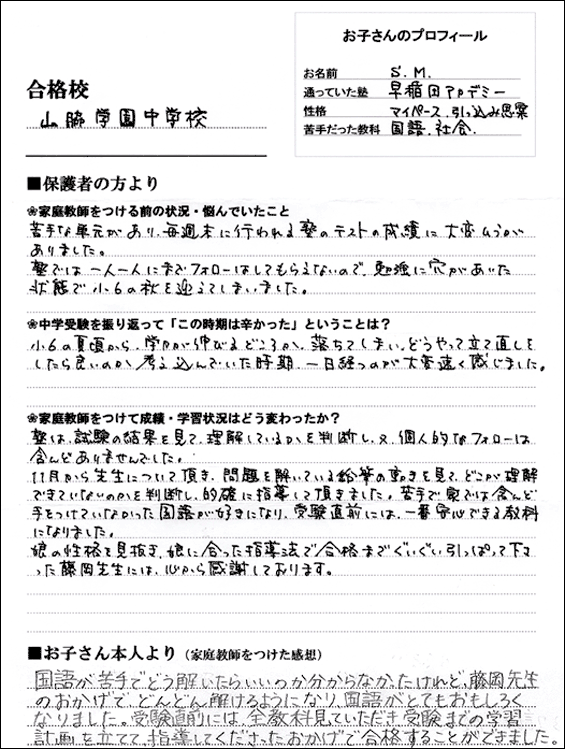 お子さんのプロフィール
お名前 S.M.
通っていた塾 早稲田アカデミー
性格 マイペース、引っ込み思案
苦手だった教科 国語、社会
合格校
山脇学園中学校
■保護者の方より
❀家庭教師をつける前の状況・悩んでいたこと
苦手な単元があり、毎週末に行われる塾のテストの成績に大変ムラが
ありました。
塾では一人一人にまでフォローはしてもらえないので、勉強に穴があいた
状態で小6の秋を迎えてしまいました。
❀中学受験を振り返って「この時期は辛かった」ということは?
小6の夏頃から、学力が伸びるどころか、落ちてしまい、どうやって立て直しを
したら良いのか考え込んでいた時期、一日経つのが大変速く感じました。
❀家庭教師をつけて成績・学習状況はどう変わったか?
塾は、試験の結果を見て、理解しているかを判断し、又、個人的なフォローは
含んどありませんでした。
11月から先生について頂き、問題を解いている鉛筆の動きを見て、どこが理解
できていないのかを判断し、的確に指導して頂きました。苦手で家では含んど
手をつけていなかった国語が好きになり、受験直前には、一番安心できる教科
になりました。
娘の性格を見抜き、娘に合った指導法で合格までぐいぐい引っぱって下さ
った藤岡先生には、心から感謝しております。
■お子さん本人より(家庭教師をつけた感想)
国語が苦手でどう解いたらいいのか分からなかったけれど、藤岡先生
のおかげで、どんどん解けるようになり、国語がとてもおもしろく
なりました。受験直前には、全教科見ていただき受験までの学習
計画を立てて、指導してくださったおかげで合格することができました。